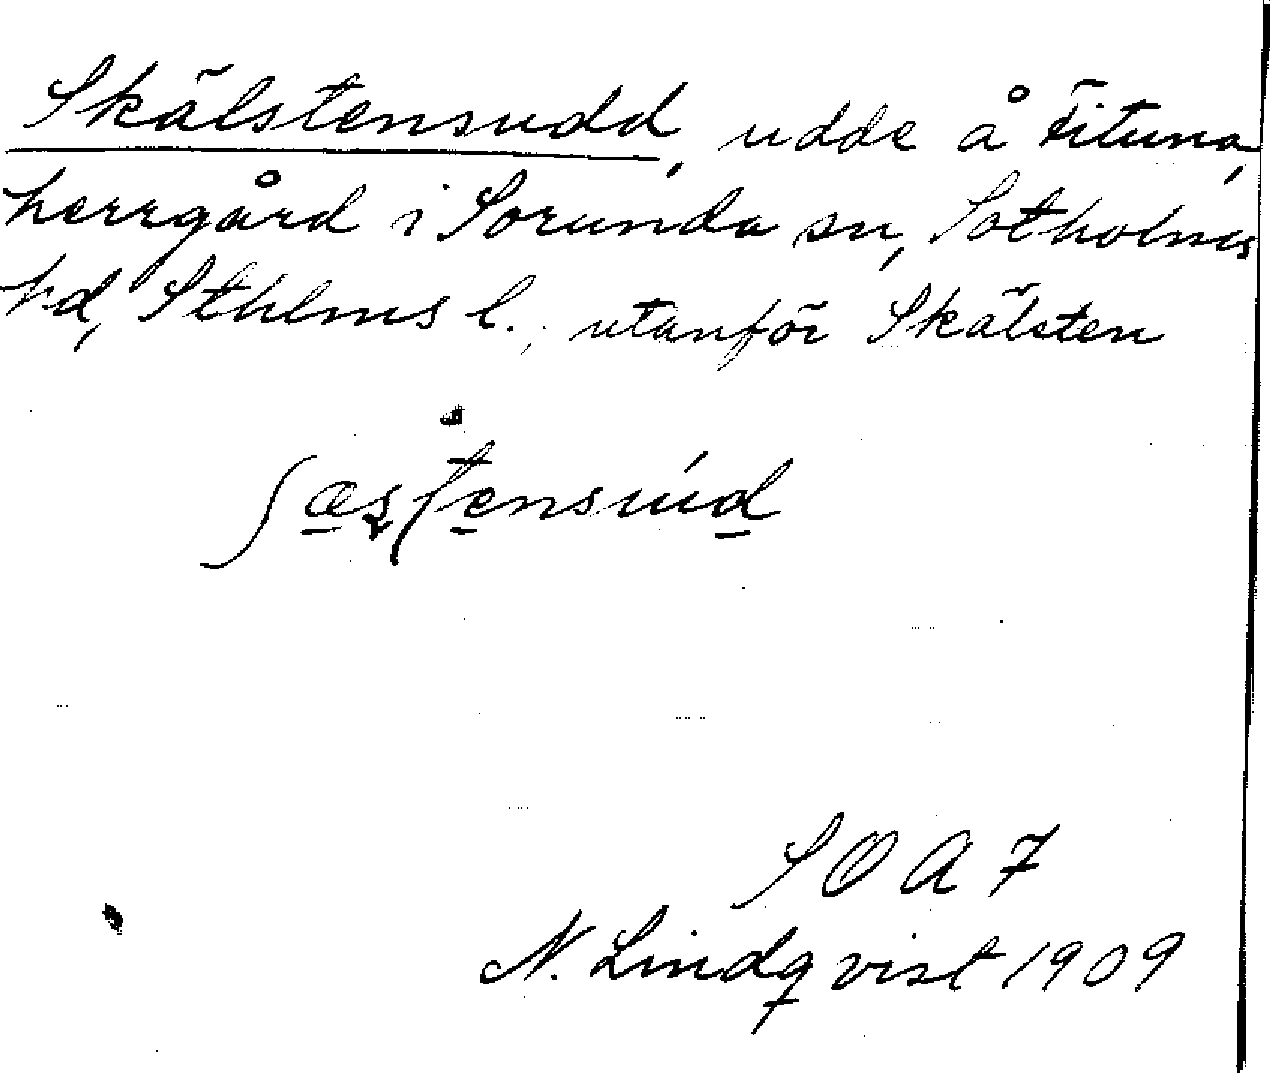 Skälstensudd, udde å Fituna,
herrgård i Sorunda sn, Sotholms
hd, Sthlms l., utanför Skälsten
SOA 7
N. Lindqvist 1909